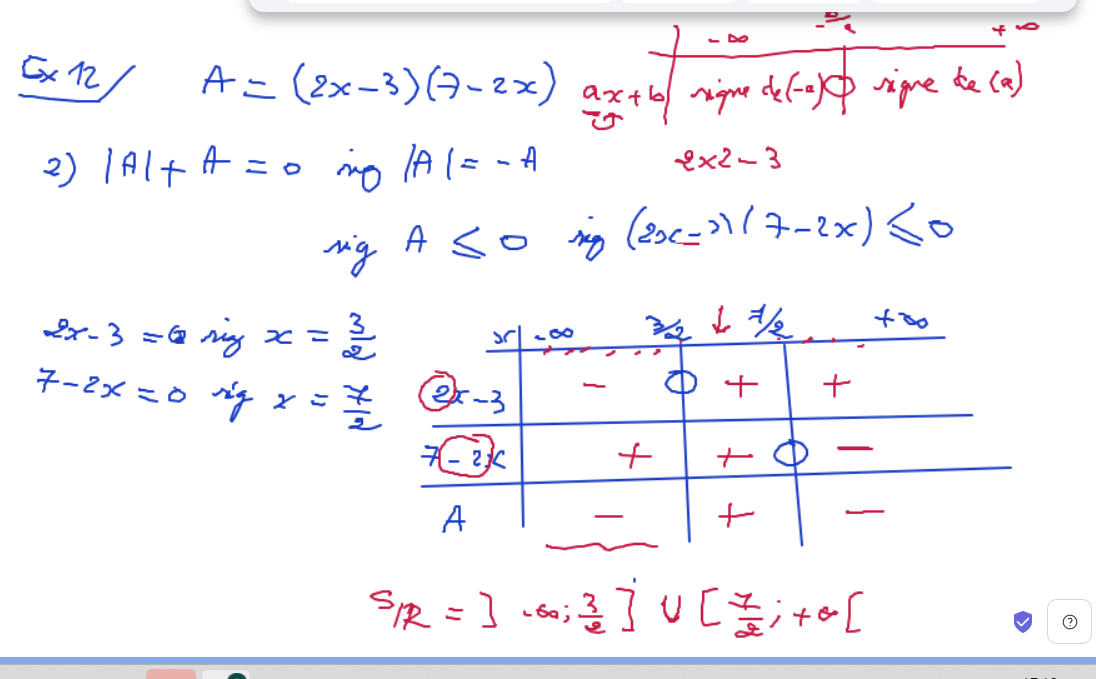 Ex 12/ A = (2x-3)(7-2x)
-∞ -b/a +∞
ax+b signe de (-a) 0 signe de (a)
2x2-3
2) |A| + A = 0 sig |A| = -A
sig A ≤ 0 sig (2x-3)(7-2x) ≤ 0
2x-3 = 0 sig x = 3/2
7-2x = 0 sig x = 7/2
x -∞ 3/2 ↓ 7/2 +∞
2x-3 - 0 + +
7-2x + + 0 -
A - + -
S/R = ]-∞; 3/2] ∪ [7/2; +∞[